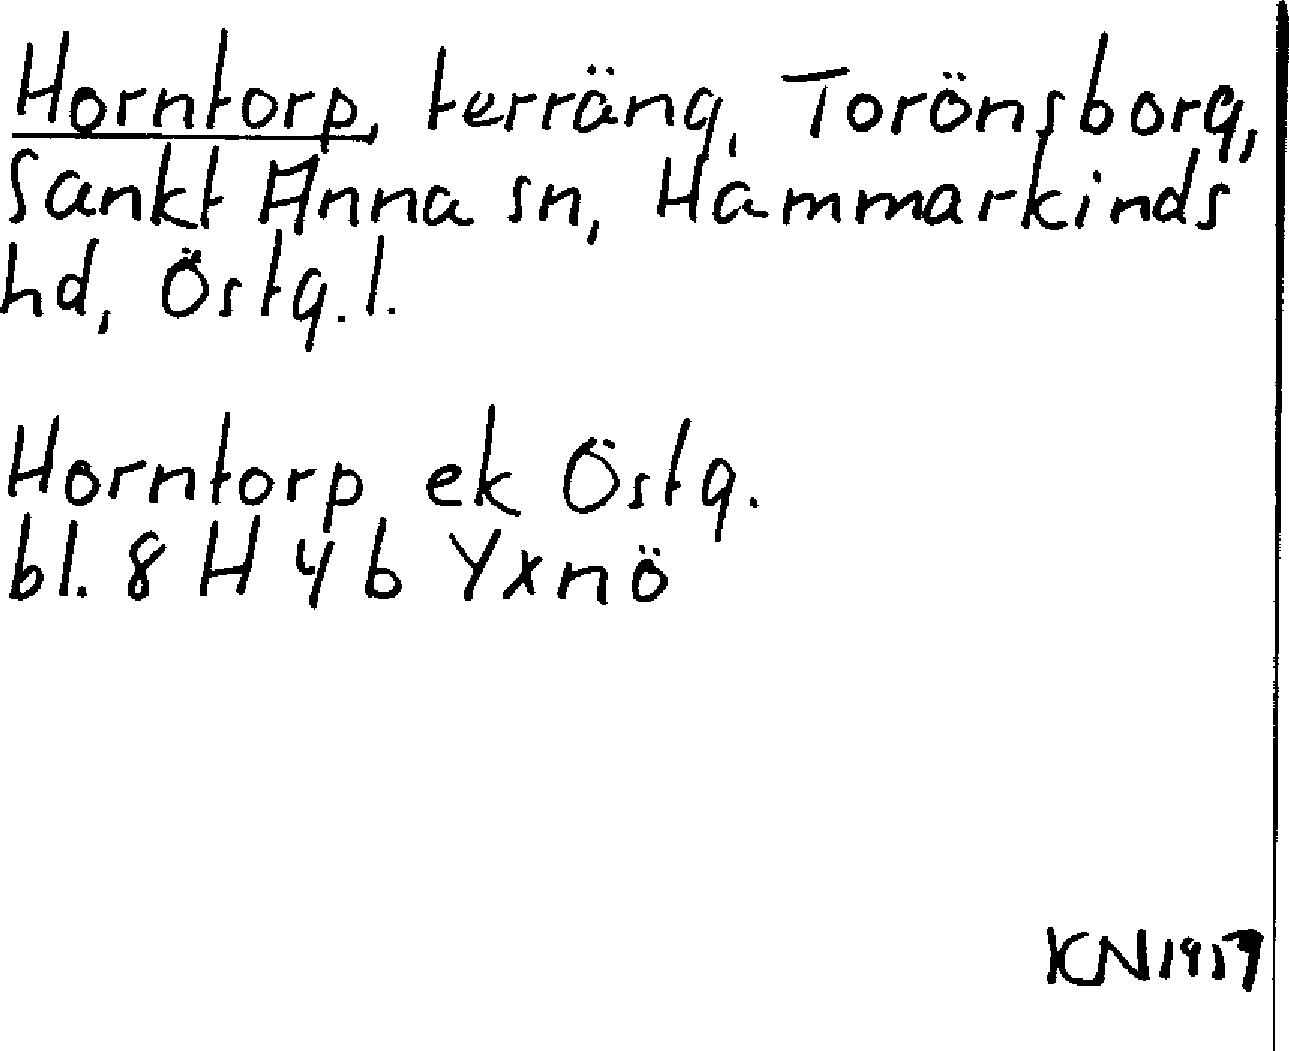 Horntorp, terräng, Torönsborg,
Sankt Anna sn, Hammarkinds
hd, Östg.l.
Horntorp ek Östg.
bl. 8 H 4 b Yxnö